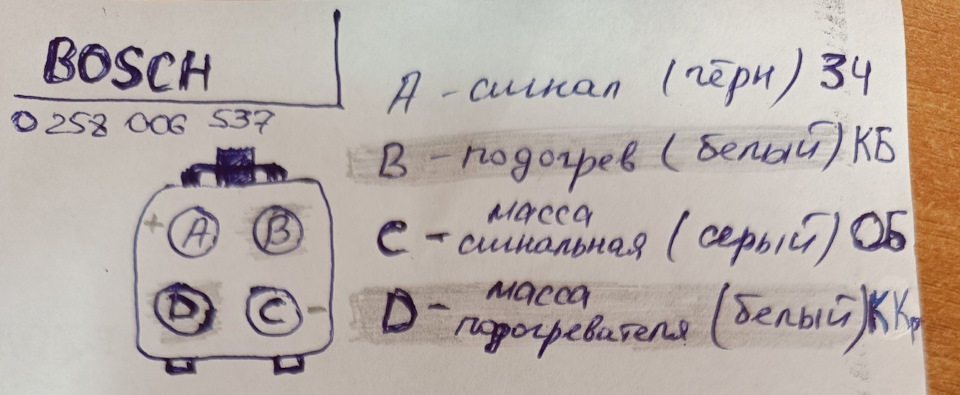 BOSCH
0 258 006 537
A - сигнал (чёрн) ЗЧ
B - подогрев (белый) КБ
C - масса сигнальная (серый) ОБ
D - масса подогревателя (белый) ККр
+ A B
D C -